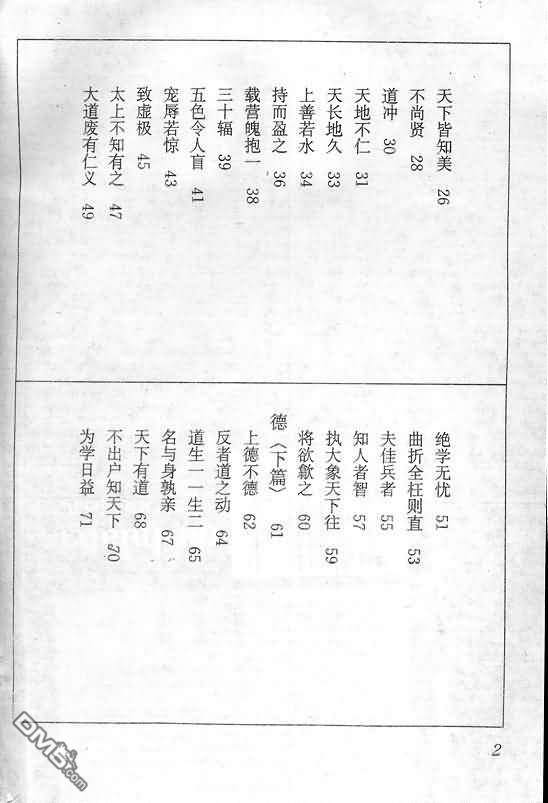 天下皆知美 26
不尚贤 28
道冲 30
天地不仁 31
天长地久 33
上善若水 34
持而盈之 36
载营魄抱一 38
三十辐 39
五色令人盲 41
宠辱若惊 43
致虚极 45
太上不知有之 47
大道废有仁义 49
绝学无忧 51
曲折全枉则直 53
夫佳兵者 55
知人者智 57
执大象天下往 59
将欲歙之 60
德〈下篇〉 61
上德不德 62
反者道之动 64
道生一一生二 65
名与身孰亲 67
天下有道 68
不出户知天下 70
为学日益 71
2
DM5.com